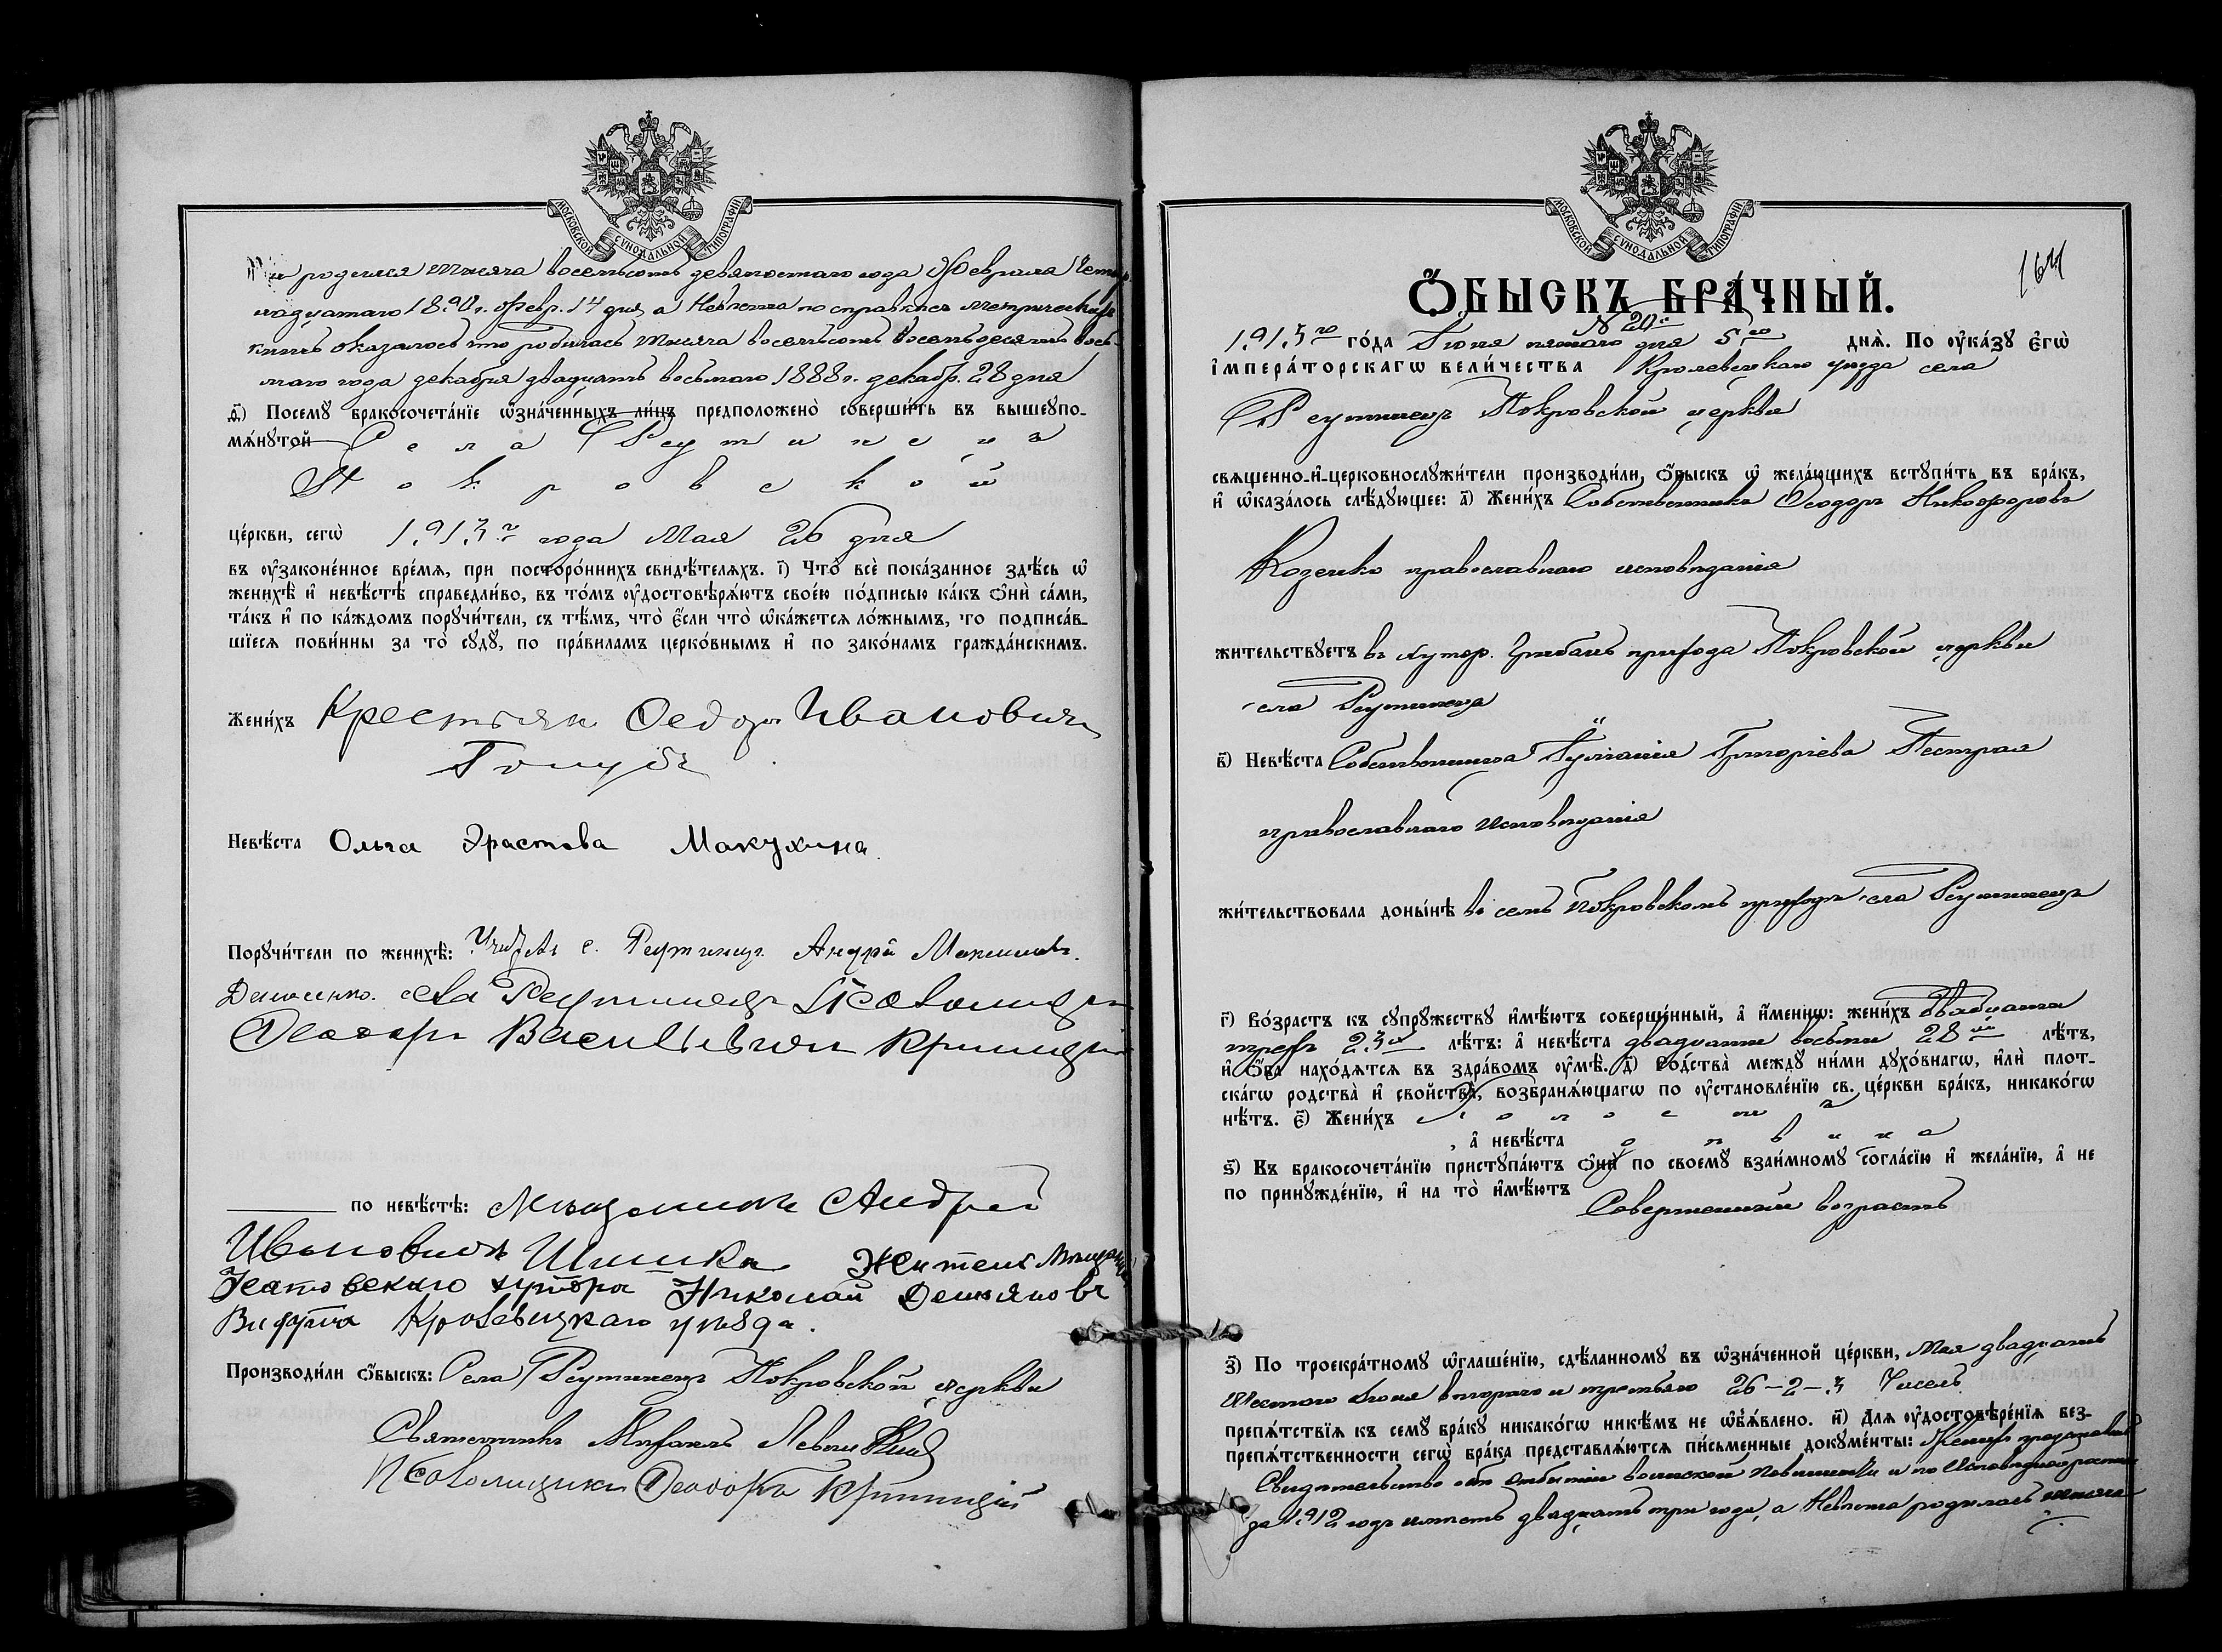 МОСКОВСКОЙ СУНОДАЛЬНОЙ ТИПОГРАФІИ
и родился тысяча восемьсотъ девяностаго года Февраля Четыр
надцатаго 1890 г. Февр. 14 дня, а Невѣста по справкѣ метрическихъ
книгъ оказалось что родилась тысяча восемьсотъ восемьдесятъ вось
маго года декабря двадцать восьмаго 1888 г. декабр. 28 дня
ѳ҃) Посемꙋ бракосочета́нїе ѡ҆зна́ченныхъ ли́цъ предположено̀ соверши́ть въ вышеꙋпо-
мѧ́нꙋтой Села Реутинецъ
Покровской
це́ркви, сегѡ̀ 1913 г. года Мая 26 дня
въ ᲂу҆законе́нное вре́мѧ, при посторо́ннихъ свидѣ́телѧхъ. і҃) Что̀ всѐ пока́занное здѣ́сь ѡ҆
женихѣ̀ и҆ невѣ́стѣ справедли́во, въ то́мъ ᲂу҆достовѣрѧ́ютъ свое́ю по́дписью ка́къ ѻ҆нѝ са́ми,
та́къ и҆ по ка́ждомъ порꙋчи́тели, съ тѣ́мъ, что̀ є҆́сли что̀ ѡ҆ка́жетсѧ ло́жнымъ, то подписа́в-
шїесѧ пови́нны за то̀ сꙋдꙋ̀, по пра́виламъ церко́внымъ и҆ по зако́намъ гражда́нскимъ.
Жени́хъ Крестьян Федор Иванович
Голубъ
Невѣ́ста Ольга Эрастова Макухина.
Порꙋчи́тели по женихѣ̀: Учитель с. Реутинцъ Андрей Максимов.
Демченко. села Реутинецъ Псаломщикъ
Феодоръ Васильевичъ Криницкій
по невѣ́стѣ: Мѣщанинъ Андрей
Ивановичъ Шишка Житель
хутора Николай Демьяновъ
Кролевецкаго уѣзда.
Производи́ли ѻ҆́быскъ: Села Реутинецъ Покровской церкви
Священникъ Михаилъ
Псаломщикъ Феодоръ Криницкій
МОСКОВСКОЙ СУНОДАЛЬНОЙ ТИПОГРАФІИ
ѺБЫСКЪ БРА́ЧНЫЙ.
№ 20
1913 го го́да Іюня пятаго дня 5 го днѧ̀. По ᲂу҆ка́зꙋ є҆гѡ̀
і҆мпера́торскагѡ вели́чества Кролевецкаго уѣзда села
Реутинецъ Покровской церкви
свѧщенно-и҆-церковнослꙋжи́тели производи́ли ѻ҆́быскъ ѡ҆ жела́ющихъ встꙋпи́ть въ бра́къ,
и҆ ѡ҆каза́лось слѣ́дꙋющее: а҃) Жени́хъ Собственникъ Феодоръ Никифоровъ
Козенко православнаго исповѣданія
жительствꙋетъ въ хутор. прихода Покровской церкви
села Реутинецъ
в҃) Невѣ́ста Собственница Григоріева Пестрая
православнаго исповѣданія
жи́тельствовала доны́нѣ въ семъ Покровскомъ приходѣ села Реутинецъ
г҃) Во́зрастъ къ сꙋпрꙋжествꙋ и҆мѣ́ютъ соверше́нный, а҆ и҆́менно: жени́хъ двадцати
трехъ 23 х лѣ́тъ: а҆ невѣ́ста двадцати восьми 28 ми лѣ́тъ,
и҆ ѻ҆́ба нахо́дѧтсѧ въ здра́вомъ ᲂу҆мѣ̀. д҃) Родства̀ междꙋ ни́ми дꙋхо́внагѡ, и҆лѝ плот-
ска́гѡ родства̀ и҆ свойства̀, возбранѧ́ющагѡ по ᲂу҆становле́нїю св. це́ркви бра́къ, никако́гѡ
нѣ́тъ. є҃) Жени́хъ холостъ
, а҆ невѣ́ста дѣвица
ѕ҃) Къ бракосочета́нїю пристꙋпа́ютъ ѻ҆нѝ по своемꙋ̀ взаи́мномꙋ согла́сїю и҆ жела́нїю, а҆ не
по принꙋжде́нїю, и҆ на то̀ и҆мѣ́ютъ Совершенный возрастъ
з҃) По троекра́тномꙋ ѡ҆глаше́нїю, сдѣ́ланномꙋ въ ѡ҆зна́ченной це́ркви, Мая двадцать
шестого Іюня второго и третьяго 26-2-3 Числъ
препѧ́тствїѧ къ семꙋ̀ бра́кꙋ никако́гѡ никѣ́мъ не ѡ҆б̾ѧ́влено. и҃) Длѧ ᲂу҆достовѣре́нїѧ без-
препѧ́тственности сегѡ̀ бра́ка представлѧ́ютсѧ пи́сьменные докꙋме́нты: Женихъ представилъ
Свидѣтельство объ отбытіи воинской повинности и по Исповѣдной росписи
за 1912 годъ имѣетъ двадцать три года, а Невѣста родилась тысяча